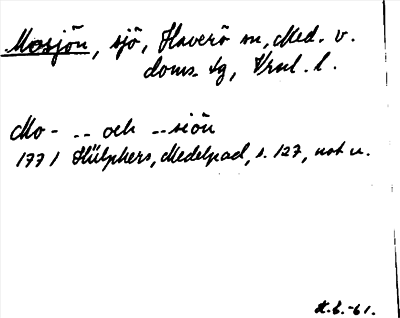 Mosjön, sjö, Haverö sn, Med. v.
doms. tg, Vrnl. l.
Mo - -- och --siön
1771 Hülphers, Medelpad, s. 127, not u.
-61.